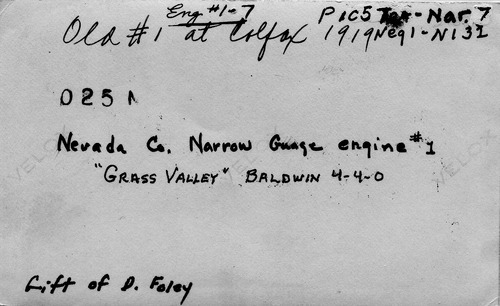 Eng #1-7 Pic5 Nar. 7
Old #1 at Colfax 1919 Neg1-N131
025
Nevada Co. Narrow Guage engine #1
"GRASS VALLEY" BALDWIN 4-4-0
VELOX VELOX
Gift of D. Foley